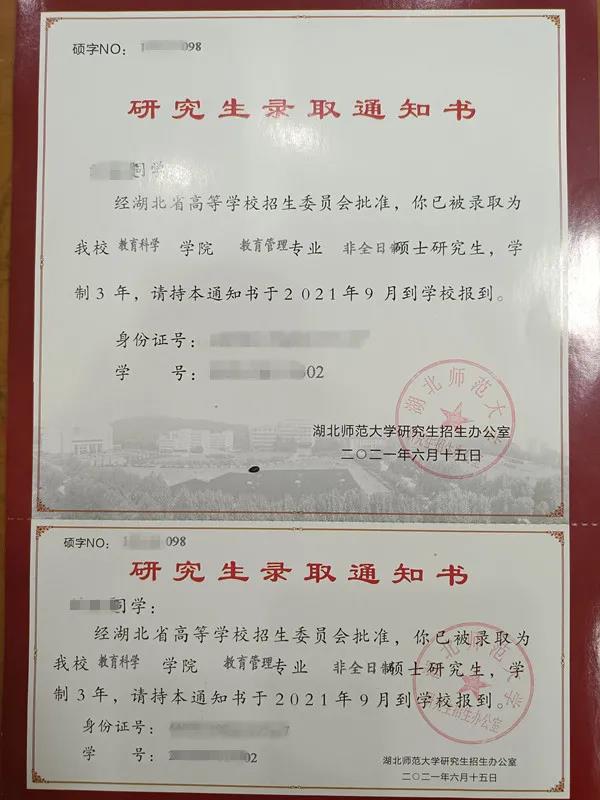 硕字NO: 098
研究生录取通知书
同学
经湖北省高等学校招生委员会批准，你已被录取为
我校 教育科学 学院 教育管理专业 非全日制硕士研究生，学
制3年，请持本通知书于2021年9月到学校报到。
身份证号：
学 号： 02
湖北师范大学研究生招生办公室
二〇二一年六月十五日
硕字NO: 098
研究生录取通知书
同学：
经湖北省高等学校招生委员会批准，你已被录取为
我校 教育科学 学院 教育管理专业 非全日制硕士研究生，学
制3年，请持本通知书于2021年9月到学校报到。
身份证号：
学 号： 02
湖北师范大学研究生招生办公室
二〇二一年六月十五日